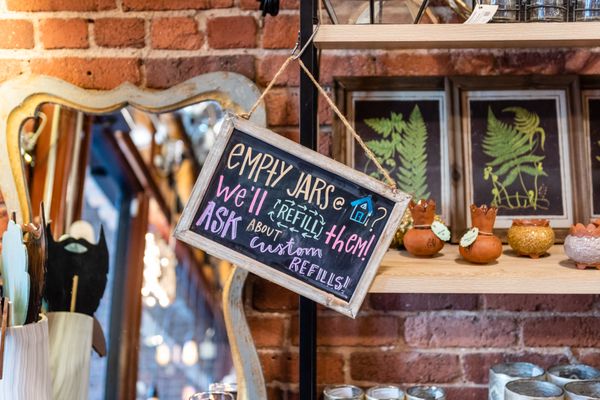 EMPTY JARS @ ?
WE'll REFILL THEM!
ASK ABOUT CUSTOM
REFILLS!